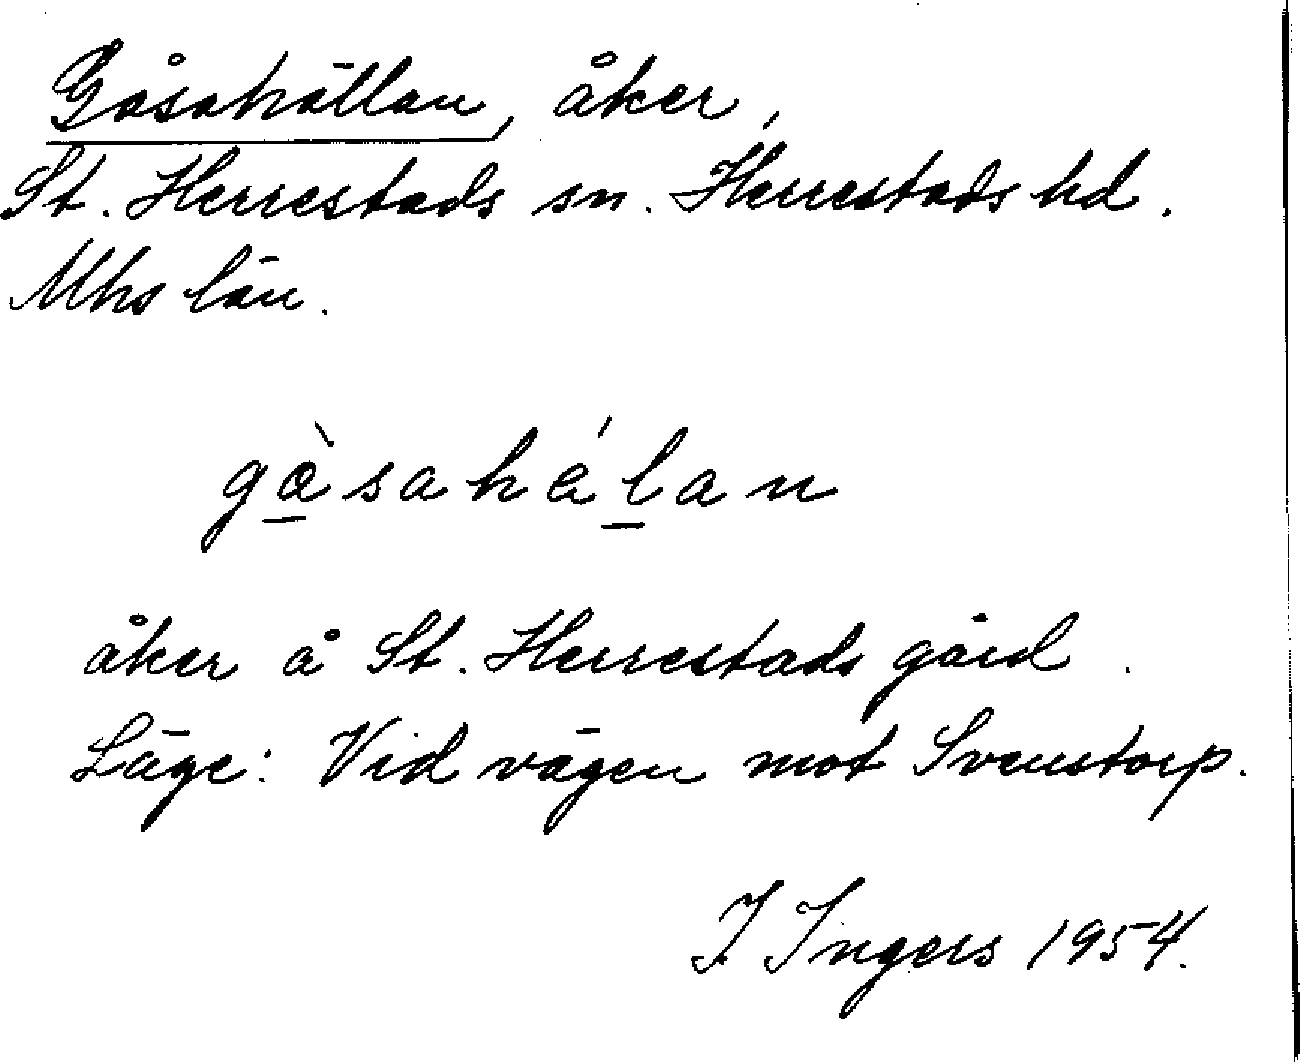 Gåsahällan, åker,
St. Herrestads sn. Herrestads hd.
Mhs län.
gàsahálan
åker å St. Herrestads gård.
Läge: Vid vägen mot Svenstorp.
I Ingers 1954.